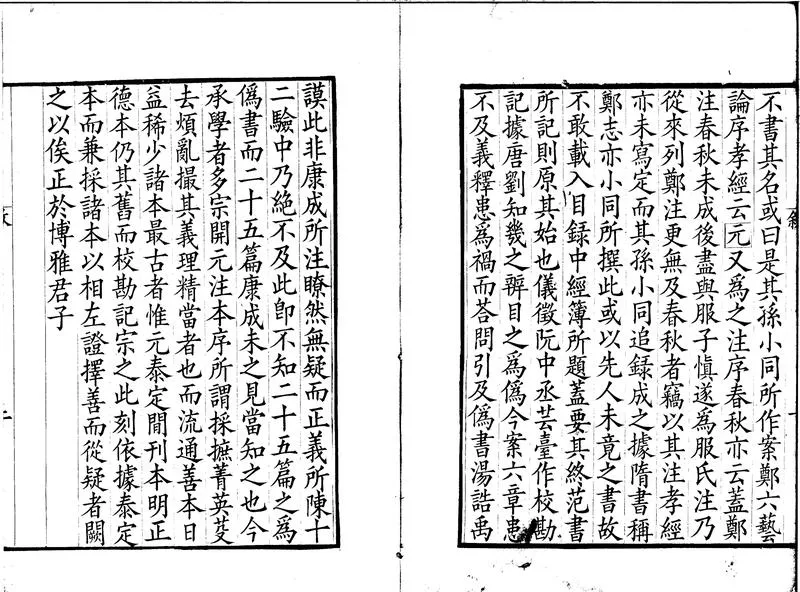 不書其名或曰是其孫小同所作案鄭六藝
論序孝經云元又爲之注序春秋亦云蓋鄭
注春秋未成後盡與服子愼遂爲服氏注乃
從來列鄭注更無及春秋者竊以其注孝經
亦未寫定而其孫小同追録成之據隋書稱
鄭志亦小同所撰此或以先人未竟之書故
不敢載入目録中經簿所題蓋要其終范書
所記則原其始也儀徵阮中丞芸臺作校勘
記據唐劉知幾之辨目之爲僞今案六章患
不及義釋患爲禍而荅問引及僞書湯誥禹
謨此非康成所注瞭然無疑而正義所陳十
二驗中乃絶不及此卽不知二十五篇之爲
僞書而二十五篇康成未之見當知之也今
承學者多宗開元注本序所謂採摭菁英芟
去煩亂撮其義理精當者也而流通善本日
益稀少諸本最古者惟元泰定閒刊本明正
德本仍其舊而校勘記宗之此刻依據泰定
本而兼採諸本以相左證擇善而從疑者闕
之以俟正於博雅君子